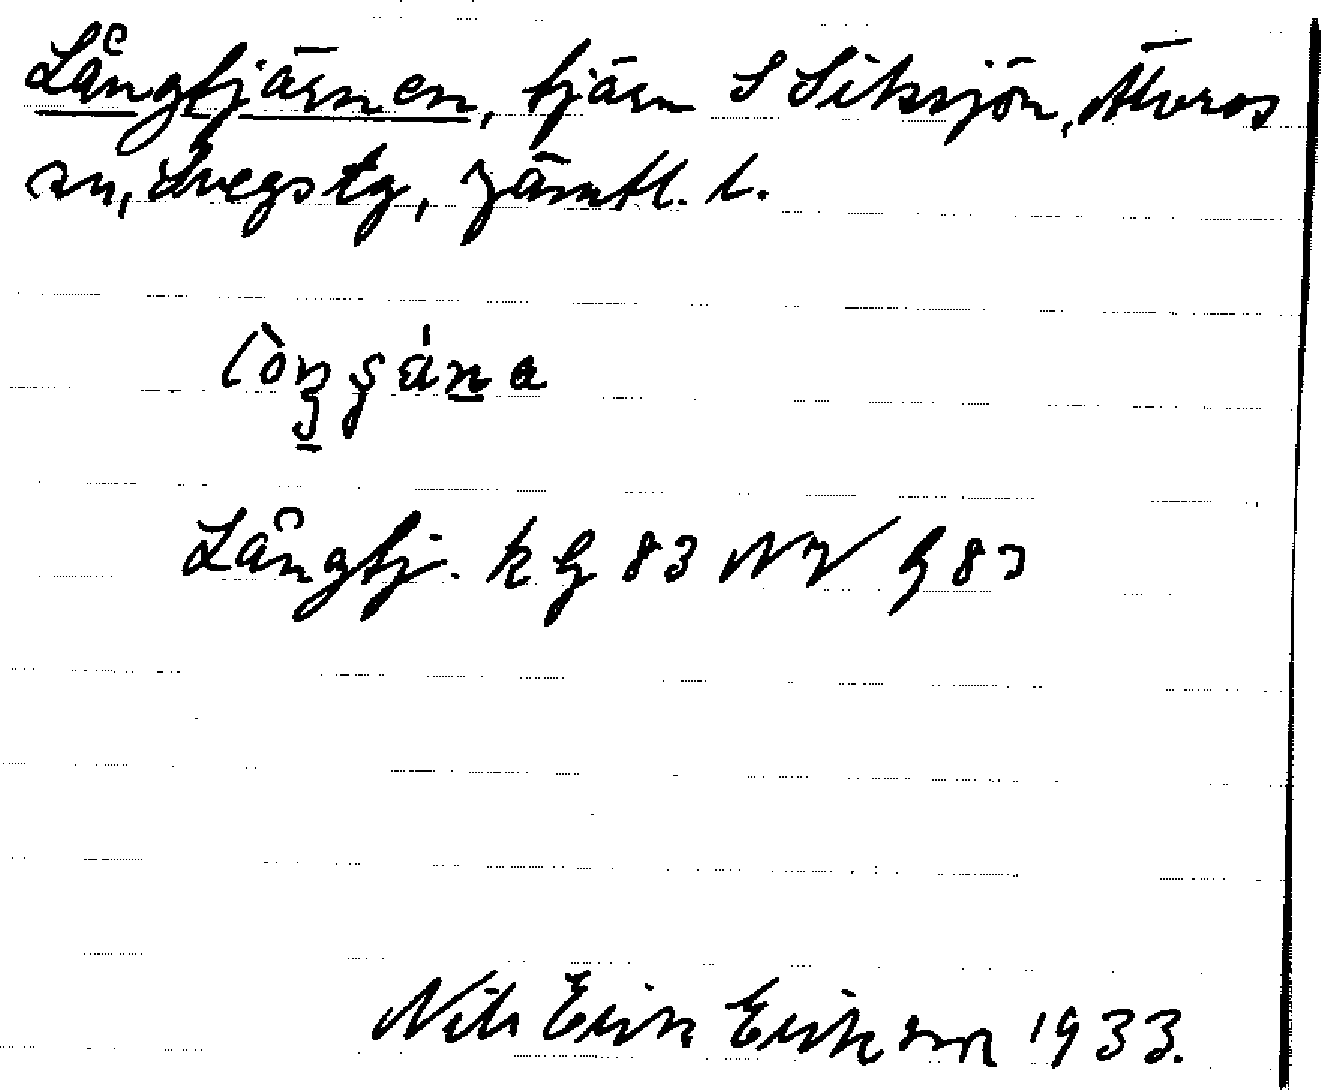 Långtjärnen, tjärn S Siksjön, Älvros
sn, Svegs tg, Jämtl. l.
Långtj. k G 83 NV G 83
Nils Erik Erikson 1933.